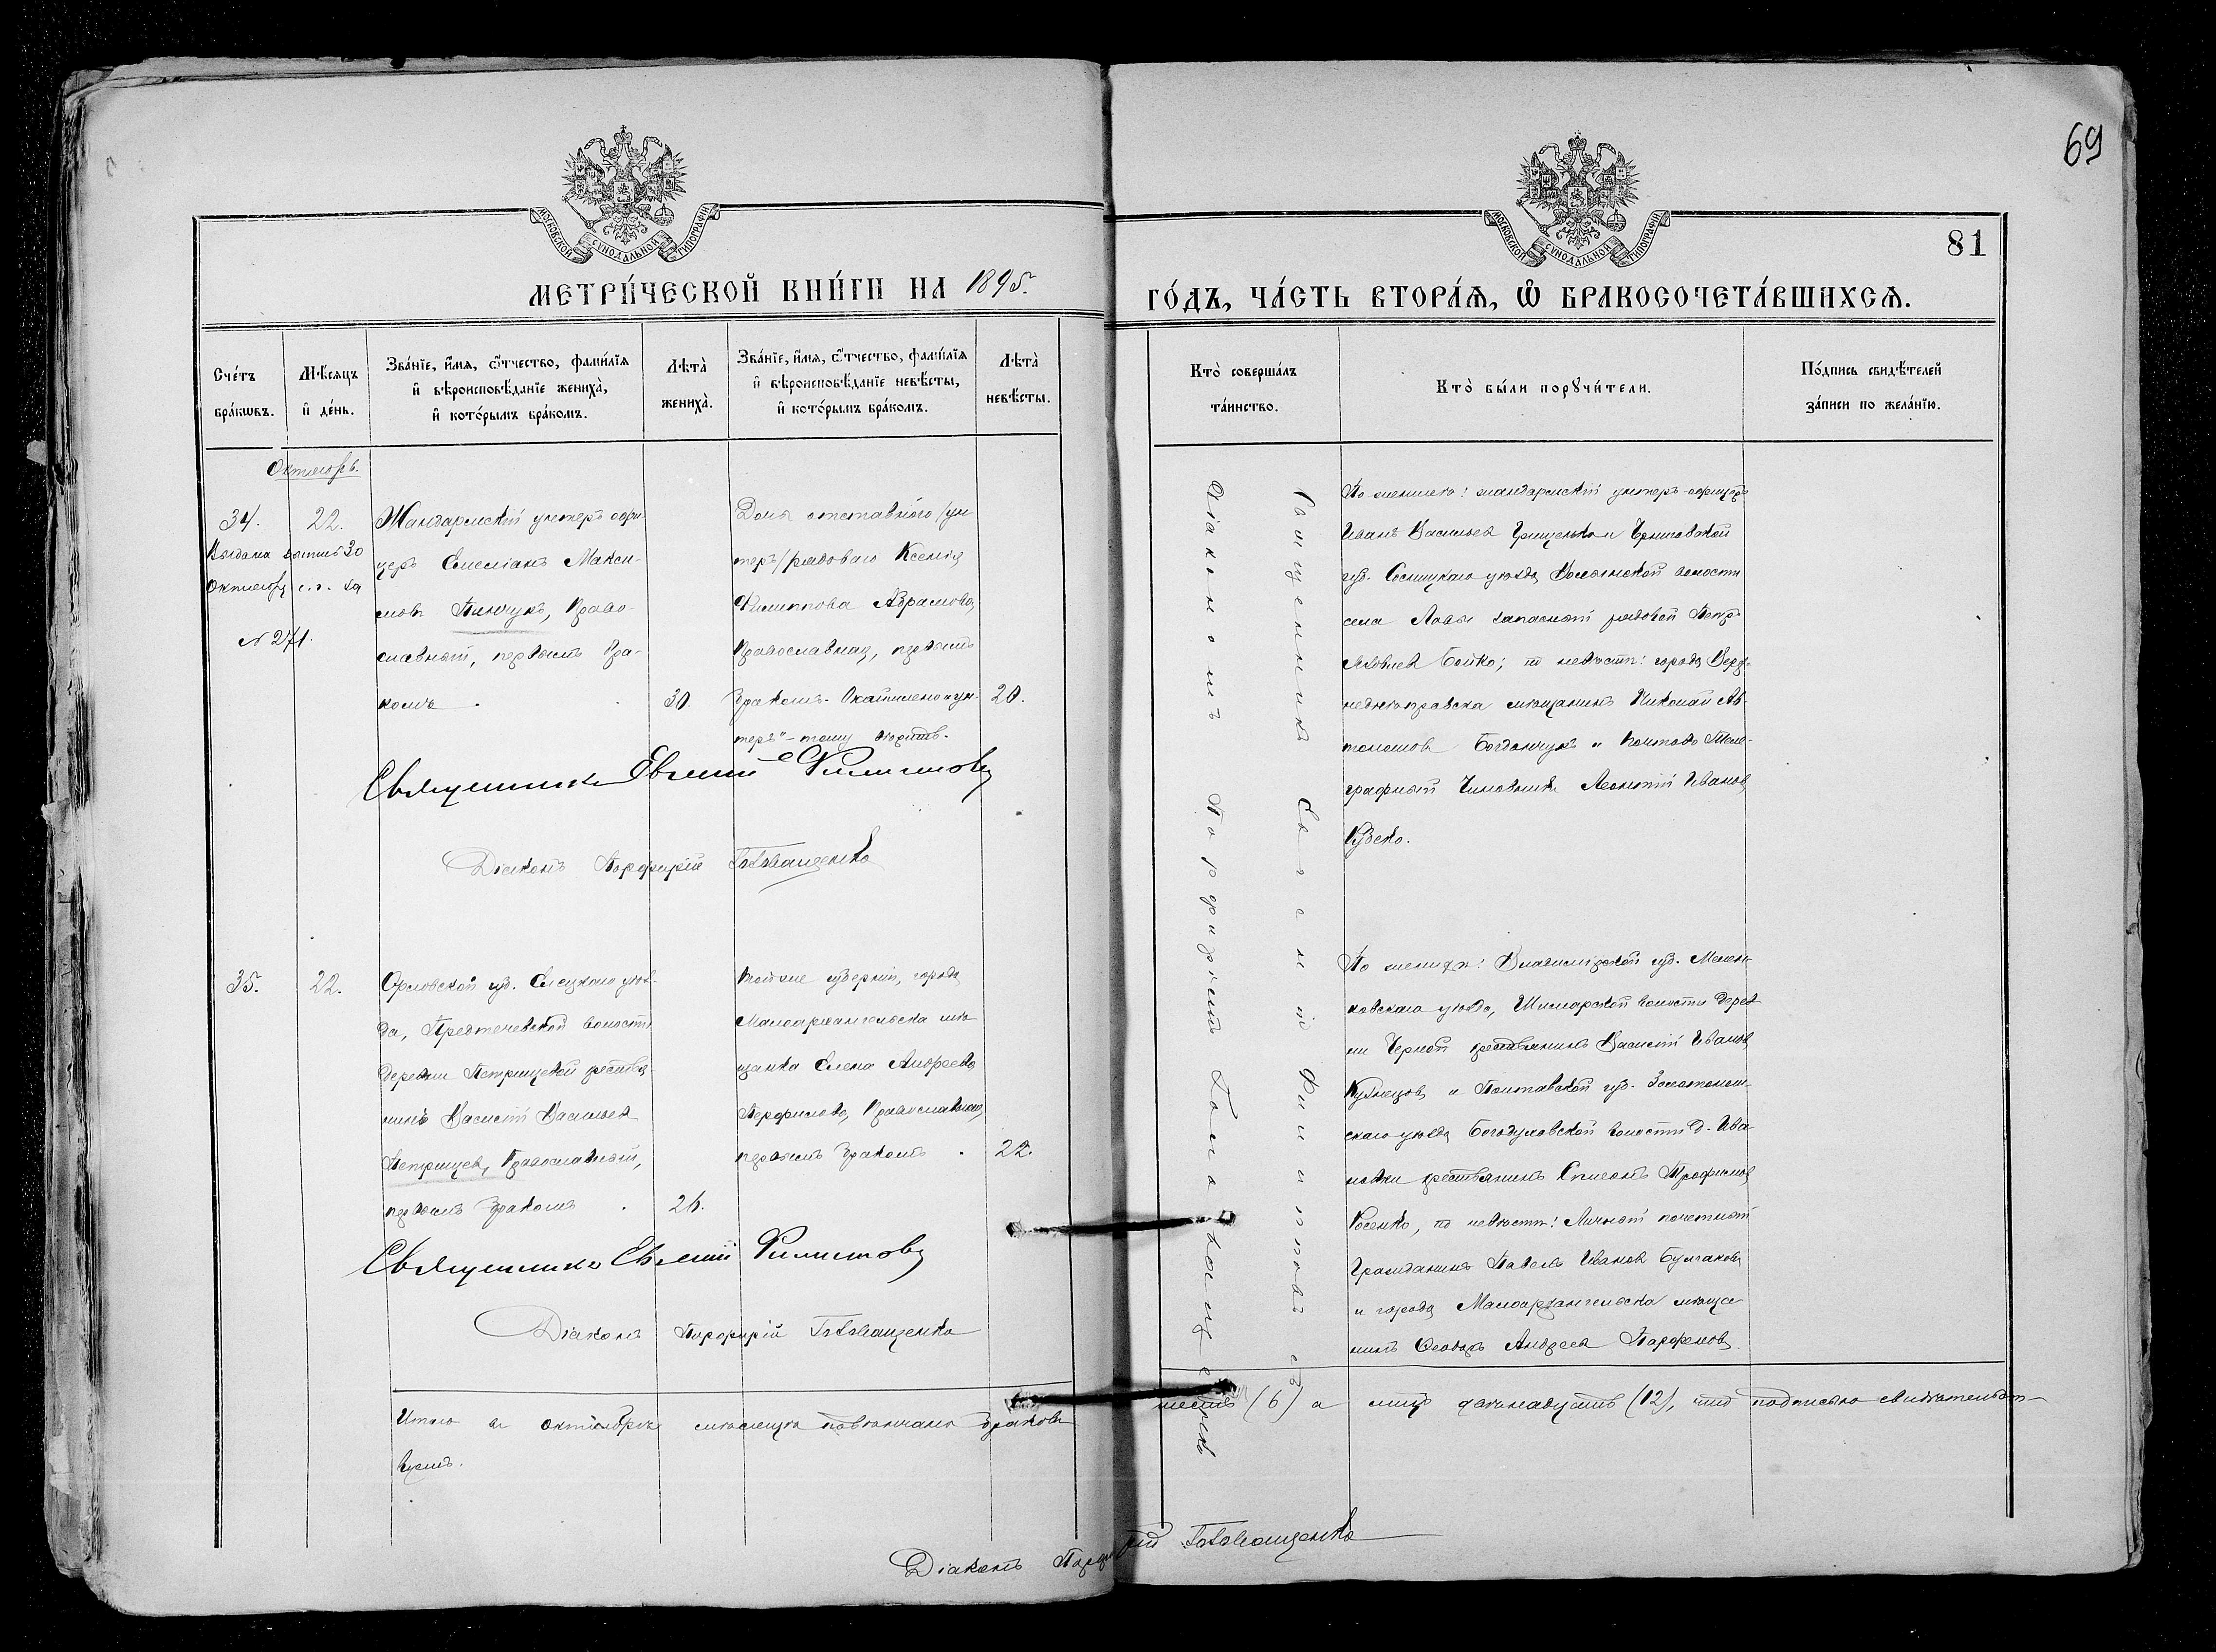 69
81
МОСКОВСКОЙ СѴНОДАЛЬНОЙ ТИПОГРАФІИ
МОСКОВСКОЙ СѴНОДАЛЬНОЙ ТИПОГРАФІИ
МЕТРИ́ЧЕСКОЙ КНИ́ГИ НА 1895.
ГО́ДЪ, ЧА́СТЬ ВТОРА́Я, Ѡ БРАКОСОЧЕТА́ВШИХСЯ.
Сче́тъ бра́кѡвъ.
Мѣ́сяцъ и҆ де́нь.
Зва́нїе, и҆́мя, ѻ҆́тчество, фами́лїя
и҆ вѣроисповѣ́данїе жениха̀,
и҆ кото́рымъ бра́комъ.
Лѣта̀ жениха̀.
Зва́нїе, и҆́мя, ѻ҆́тчество, фами́лїя
и҆ вѣроисповѣ́данїе невѣ́сты,
и҆ кото́рымъ бра́комъ.
Лѣта̀ невѣ́сты.
Кто̀ соверша́лъ
та́инство.
Кто̀ бы́ли порꙋчи́тели.
По́дпись свидѣ́телей
за́писи по жела́нїю.
Октябрь.
34.
22.
Выдана выпись 30
Октября с.г. за
№ 271.
Жандармскій унтеръ офи-
церъ Емеліанъ Макси-
мовъ Пинчукъ, Право-
славный, первымъ бра-
комъ
30.
Дочь отставного /ун-
теръ/ рядоваго Ксенія
Филиппова Абрамова,
Православная, первымъ
бракомъ.
20.
Священникъ Евгеній Филиповъ
Діаконъ Порфирій Головащенко
По женихѣ: жандармскій унтеръ-офицеръ
Иванъ Васильевъ Грищенко и Черниговской
губ. Сосницкаго уѣзда, волости
села запасный рядовой Петръ
Яковлевъ Бойко; по невѣстѣ: города Верх-
неднѣпровска мѣщанинъ Николай Ав-
тономовъ Богданчукъ и Почтово-Теле-
графный Чиновникъ Леонтій Ивановъ
35.
22.
Орловской губ. Елецкаго уѣз-
да, Предтечевской волости
деревни Петрищевой крестья-
нинъ Василій Васильевъ
Петрищевъ, Православный,
первымъ бракомъ
26.
Тойже губерніи, города
Малоархангельска мѣ-
щанка Елена Андреева
Парфенова, Православная,
первымъ бракомъ
22.
Священникъ Евгеній Филиповъ
Діаконъ Порфирій Головащенко
По женихѣ: Владимірской губ. Мелен-
ковскаго уѣзда, волости дерев-
ни Черной крестьянинъ Василій Ивановъ
Кузнецовъ и Полтавской губ. Золотонош-
скаго уѣзда волости д. Ива-
новки крестьянинъ Трофимовъ
Косенко, по невѣстѣ: Личный почетный
Гражданинъ Павелъ Ивановъ Булгаковъ
и города Малоархангельска мѣща-
нинъ Ѳеодоръ Андреевъ Парфеновъ.
Священникъ Евгеній Филипповъ съ
Діакономъ Порфиріемъ Головащенко
Итого въ октябрѣ мѣсяцѣ повѣнчано браковъ
шесть (6) а лицъ двѣнадцать (12), что подписью свидѣтельст-
вуемъ.
Діаконъ Порфирій Головащенко